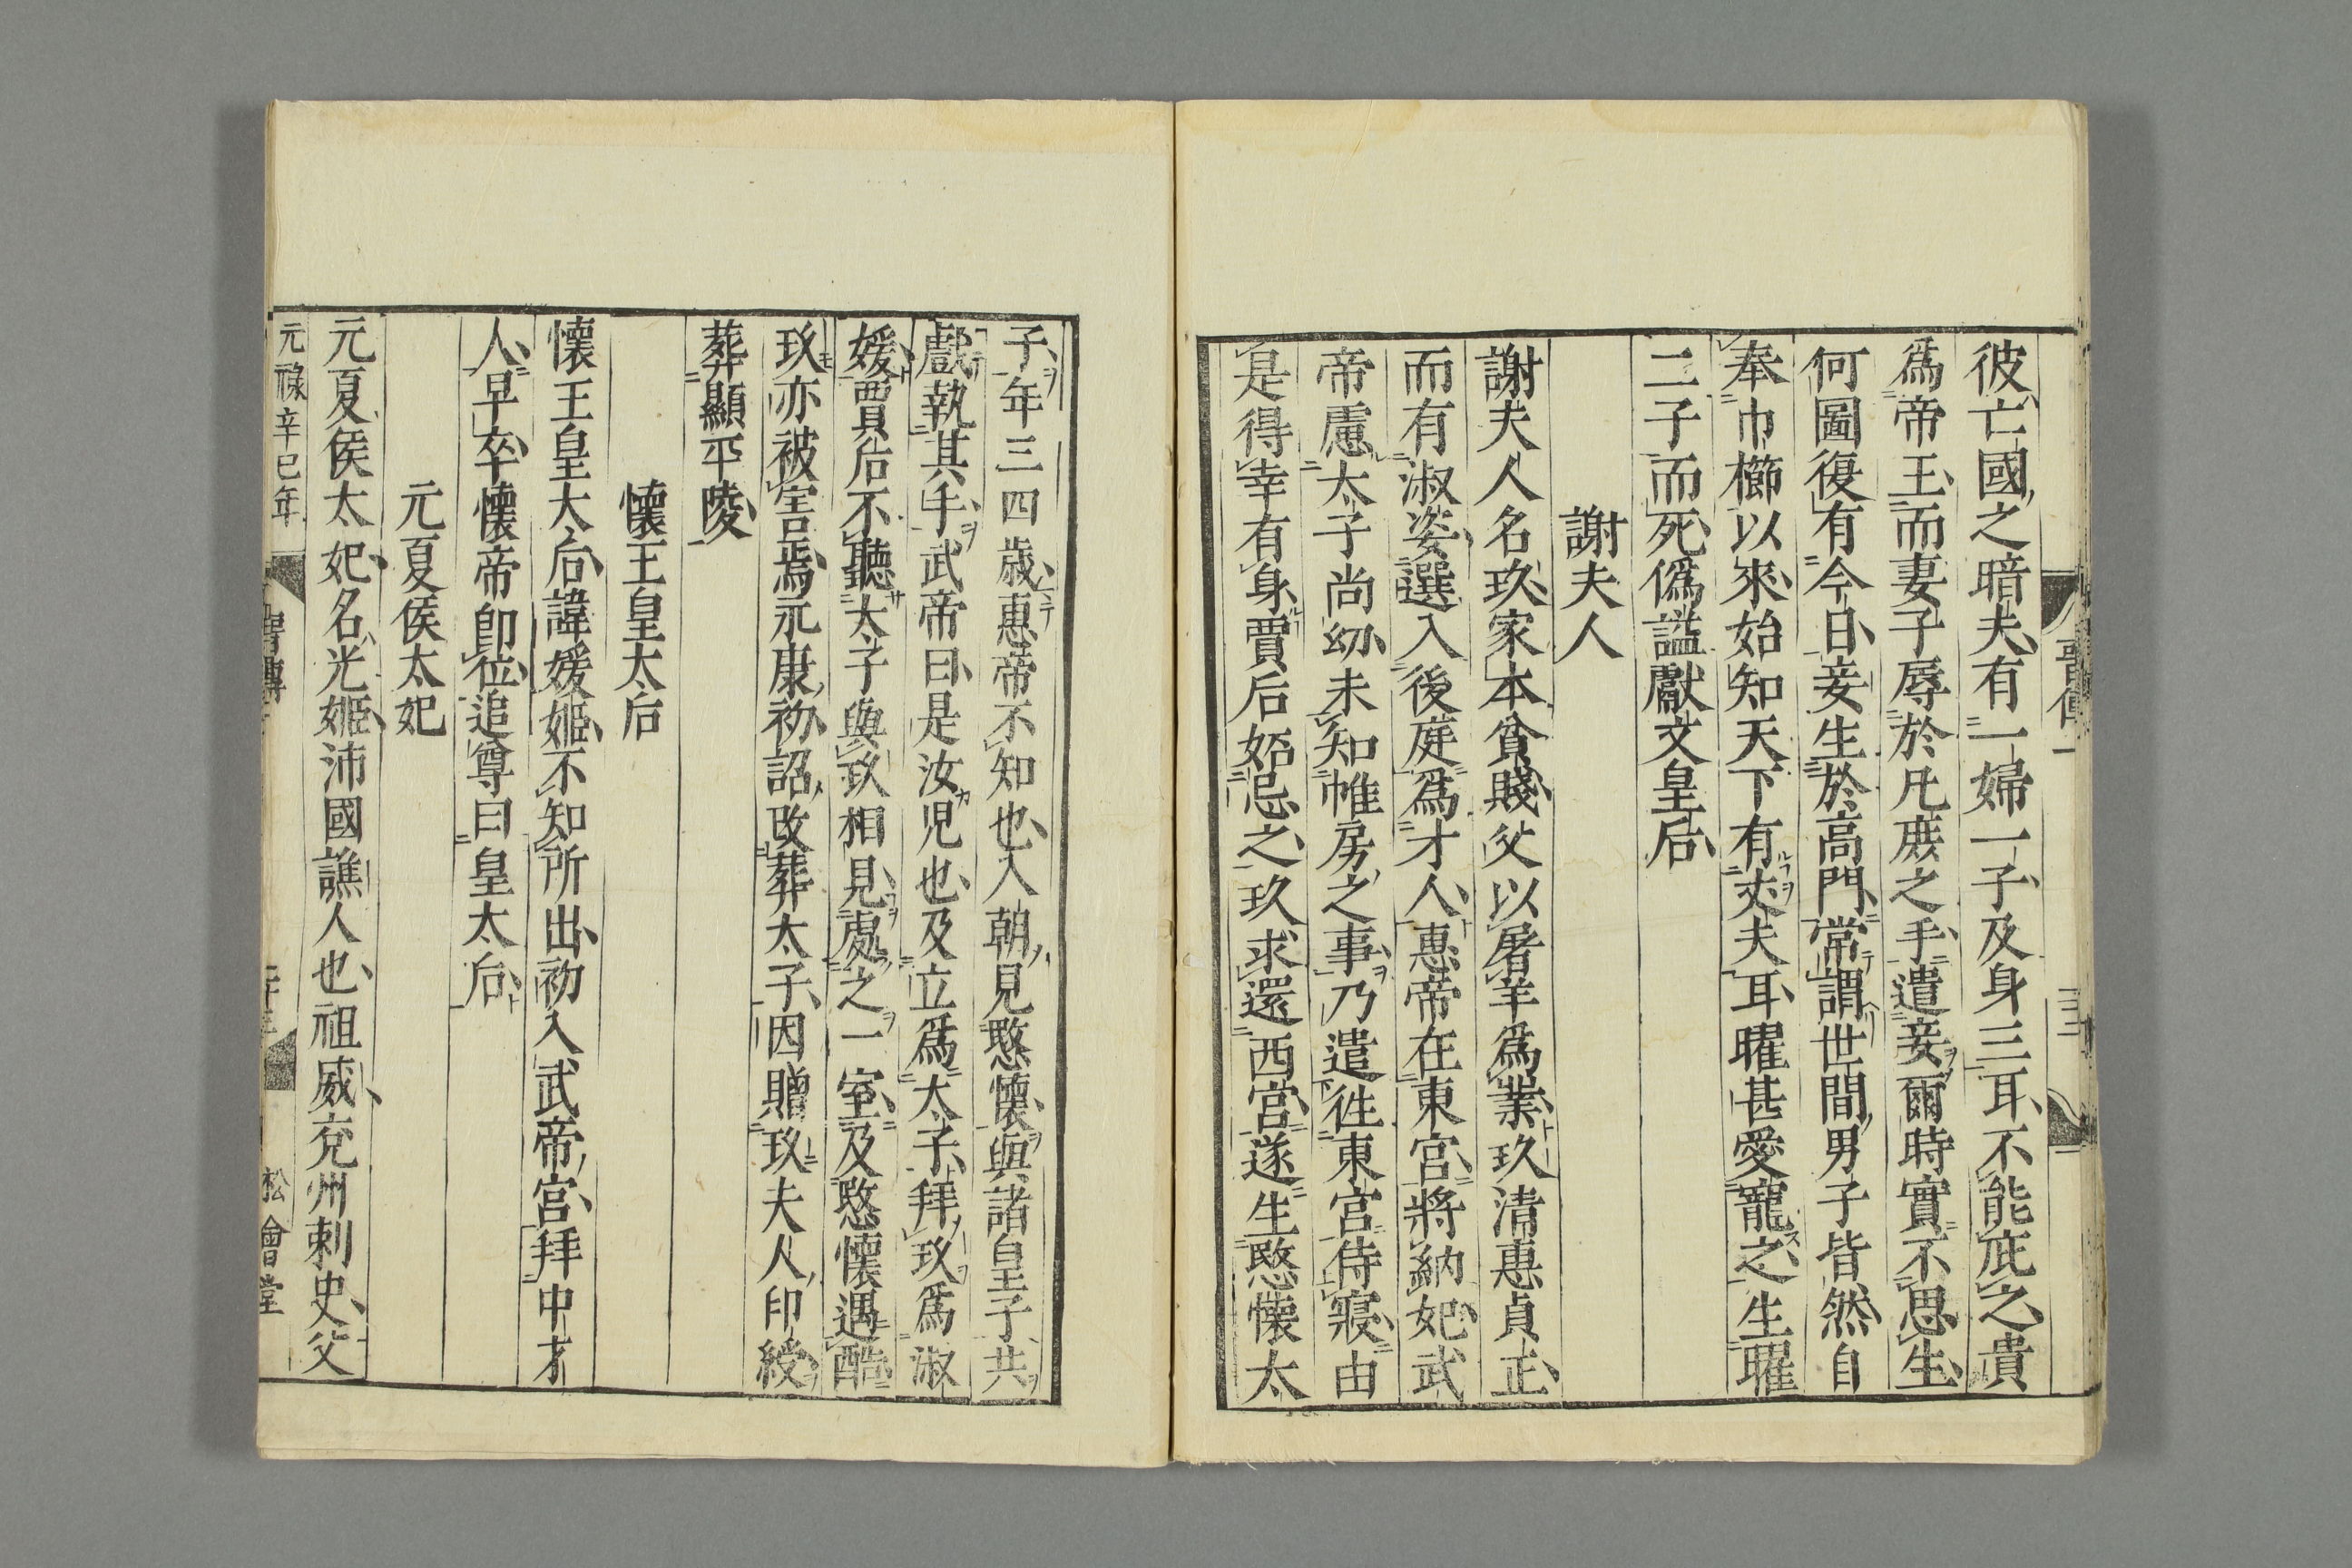 彼亡國之暗夫有一婦一子及身三耳不能庇之貴
爲帝王而妻子辱於凡庶之手遣妾爾時實不思生
何圖復有今日妾生於高門常謂世間男子皆然自
奉巾櫛以來始知天下有丈夫耳曜甚愛寵之生曜
二子而死僞謚獻文皇后
謝夫人
謝夫人名玖家本貧賤父以屠羊爲業玖清惠貞正
而有淑姿選入後庭爲才人惠帝在東宮將納妃武
帝慮太子尚幼未知帷房之事乃遣往東宮侍寢由
是得幸有身賈后妬忌之玖求還西宮遂生愍懷太
子年三四歳惠帝不知也入朝見愍懷與諸皇子共
戲執其手武帝曰是汝児也及立爲太子拜玖爲淑
媛賈后不聽太子與玖相見處之一室及愍懷遇酷
玖亦被害焉永康初詔改葬太子因贈玖夫人印綬
葬顯平陵
懷王皇太后
懷王皇太后諱媛姬不知所出初入武帝宮拜中才
人早卒懷帝即位追尊曰皇太后
元夏侯太妃
元夏侯太妃名光姬沛國譙人也祖威兗州刺史父
元祿辛巳年
松會堂